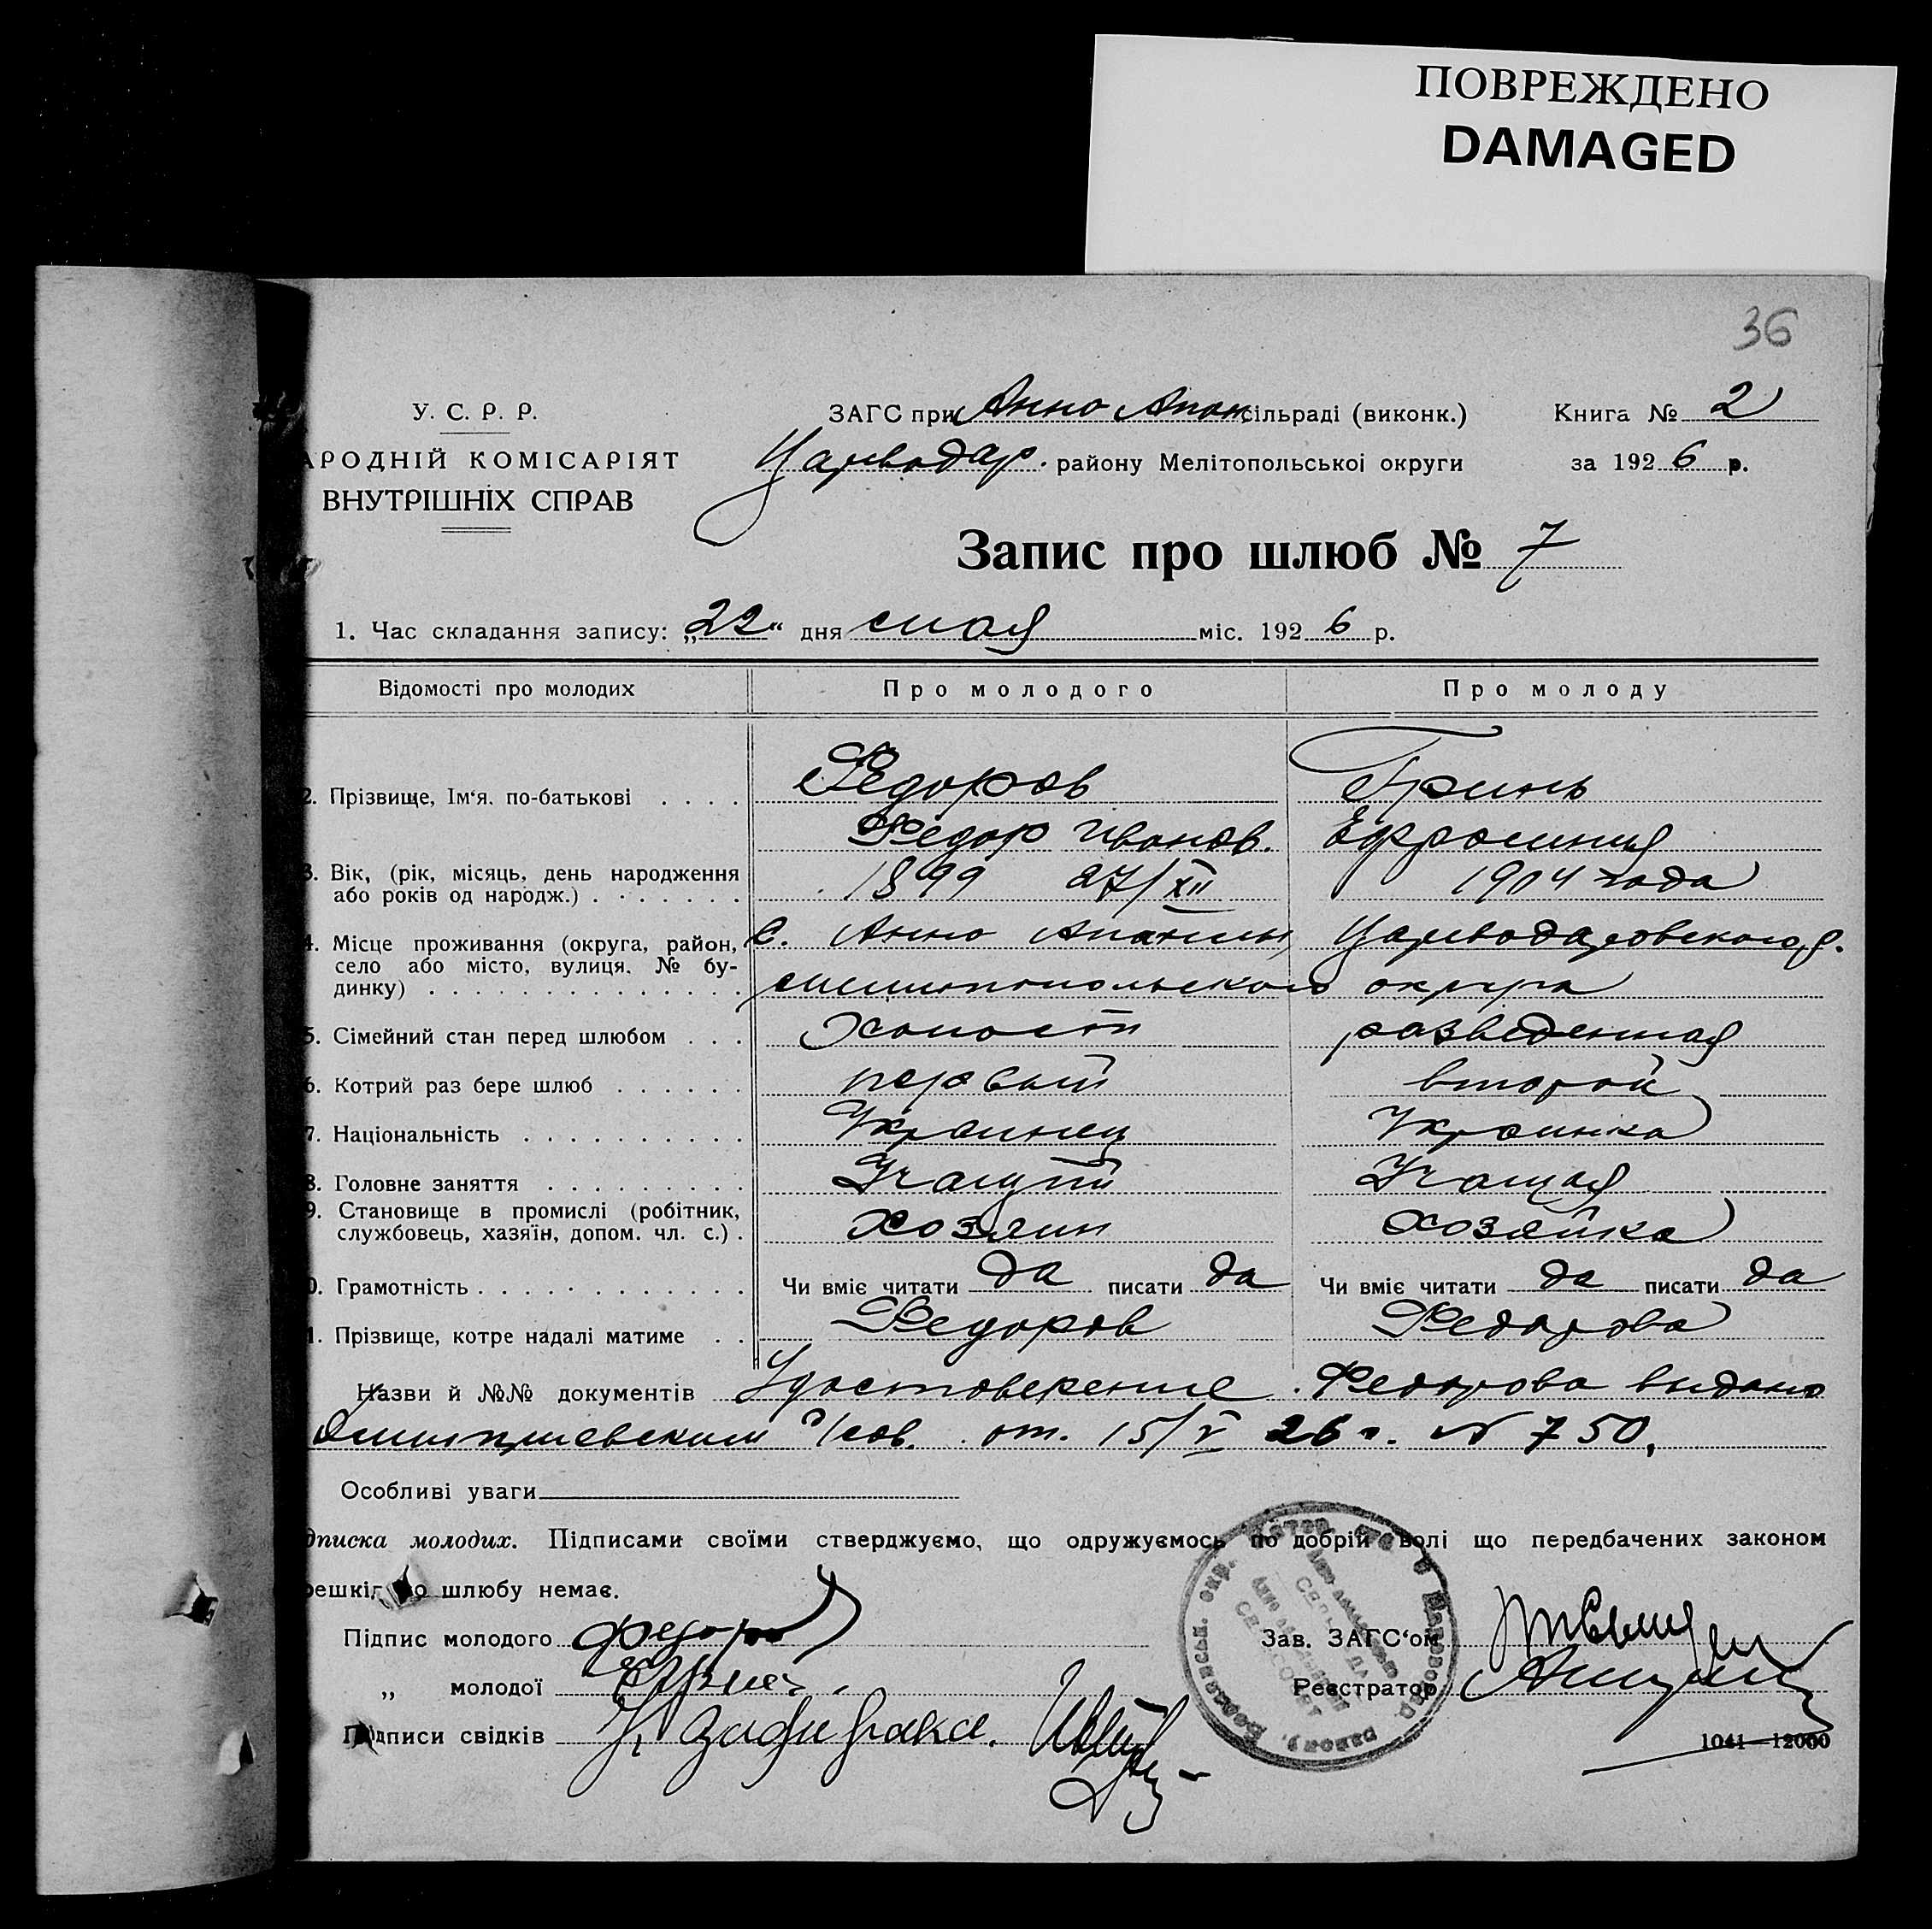 ПОВРЕЖДЕНО
DAMAGED
36
У. С. Р. Р.
АРОДНІЙ КОМІСАРІЯТ
ВНУТРІШНІХ СПРАВ
ЗАГС при Анно Апан. сільраді (виконк.)
Царводар. району Мелітопольської округи
Книга № 2
за 1926 р.
Запис про шлюб № 7
1. Час складання запису: „22“ дня мая міс. 1926 р.
Відомості про молодих Про молодого Про молоду
2. Прізвище, Ім‘я. по-батькові . . . . Федоров Гринь
Федор Иванов. Ефросиния
3. Вік, (рік, місяць, день народження
або років од народж.) . . . . . . . 1899 27/XII 1904 года
4. Місце проживання (округа, район, с. Анно Апании Царводаровского р.
село або місто, вулиця. № бу-
динку) . . . . . . . . . . . . . . . мелитопольского округа
5. Сімейний стан перед шлюбом . . . Холост разведенная
6. Котрий раз бере шлюб . . . . . . первый второй
7. Національність . . . . . . . . . . . Украинец Украинка
8. Головне заняття . . . . . . . . . Учащий Учащая
9. Становище в промислі (робітник,
службовець, хазяїн, допом. чл. с.) . хозяин хозяйка
0. Грамотність . . . . . . . . . . . . . Чи вміє читати да писати да Чи вміє читати да писати да
1. Прізвище, котре надалі матиме . . Федоров Федорова
Назви й №№ документів Удостоверение Федорова видано
с/сов. от. 15/V 26 г. № 750.
Особливі уваги
дписка молодих. Підписами своїми стверджуємо, що одружуємось по добрій волі що передбачених законом
решкід до шлюбу немає.
Підпис молодого Федоров
Зав. ЗАГС‘ом
„ молодої
Реєстратор
Підписи свідків
1041—12000